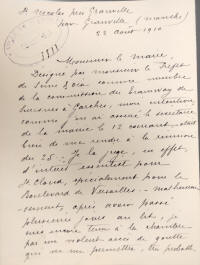 St Nicolas près Granville
par Granville (Manche)
22 août 1910
Monsieur le maire,
Désigné par monsieur le Préfet
de Seine & Oise comme membre
de la commission du tramway de
à Garches, mon intention,
comme j'en ai assuré le secrétaire
de la mairie le 12 courant, était
bien de me rendre à la réunion
du 25. Je la juge, en effet,
d'intérêt essentiel pour
St Cloud, spécialement pour le
Boulevard de Versailles. Malheureu-
sement, après avoir passé
plusieurs jours au lit, je
suis encore tenu à la chambre
par un violent accès de goutte
qui ne me permettra,